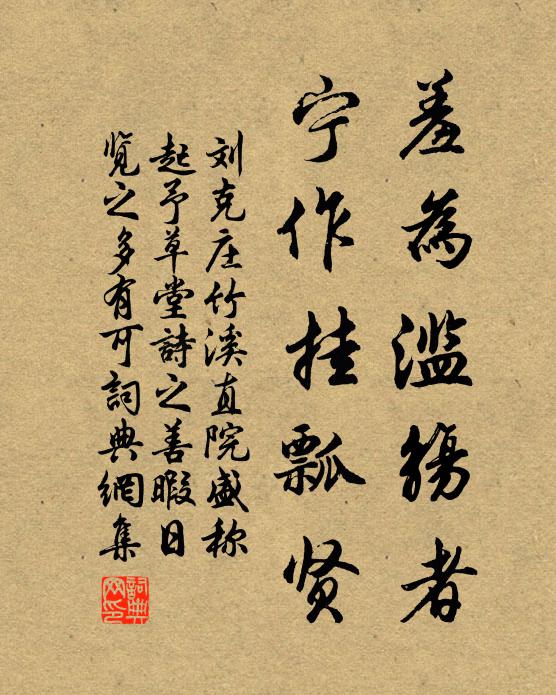 羞為滥觞者
宁作挂瓢贤
刘克庄竹溪直院盛称
起予草堂詩之善暇日
览之多有可詞典網集
詞典
网印